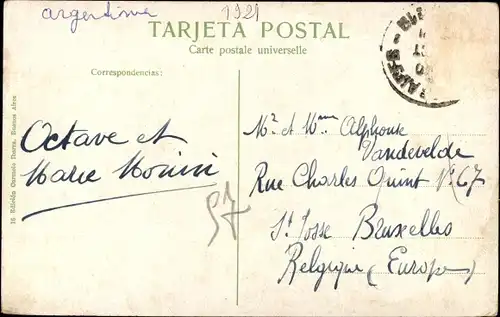 argentina 1921
TARJETA POSTAL
Carte postale universelle
Correspondencias:
Octave et
Marie Monini
57
Mr et Mme Alphonse
Vandevelde
Rue Charles Quint No 67
St Josse Bruxelles
Belgique (Europe)
Buenos Aires